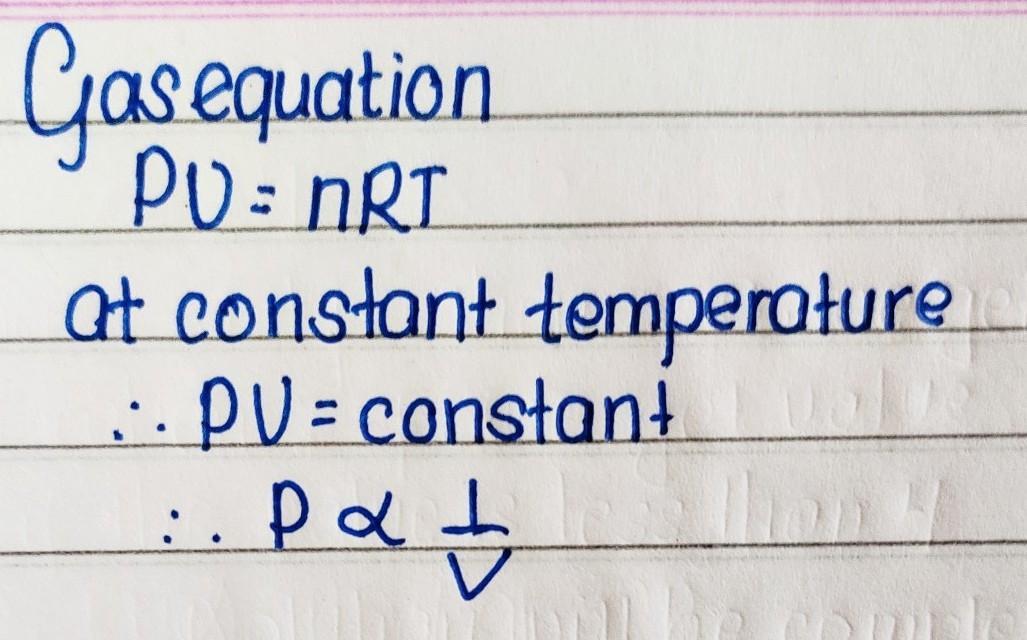 Gas equation
PV = nRT
at constant temperature
∴ PV = constant
∴ P ∝ 1/V